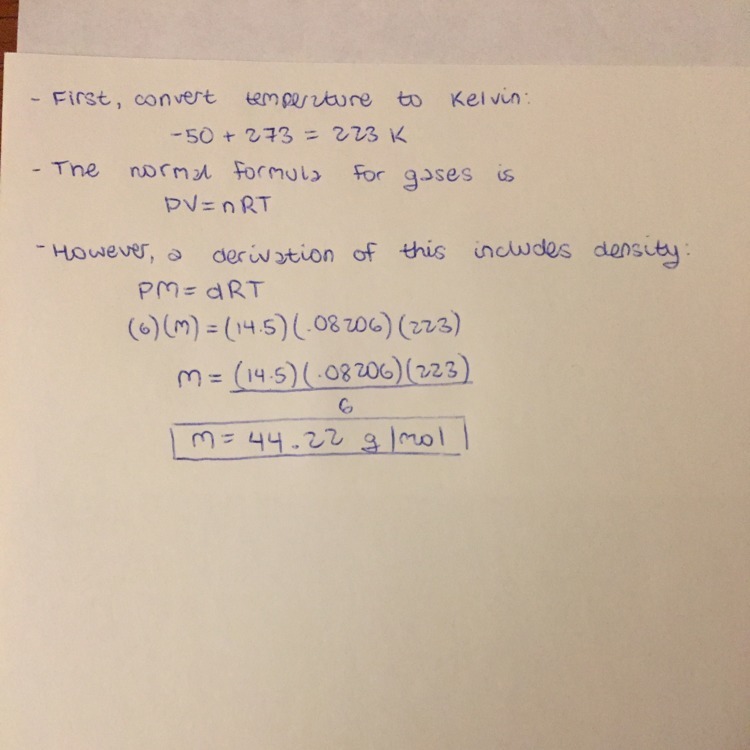 - First, convert temperature to Kelvin:
-50 + 273 = 223 K
- The normal formula for gases is
PV=nRT
- However, a derivation of this includes density:
PM=dRT
(6)(M)=(14.5)(.08206)(223)
M=(14.5)(.08206)(223)
6
M= 44.22 g/mol